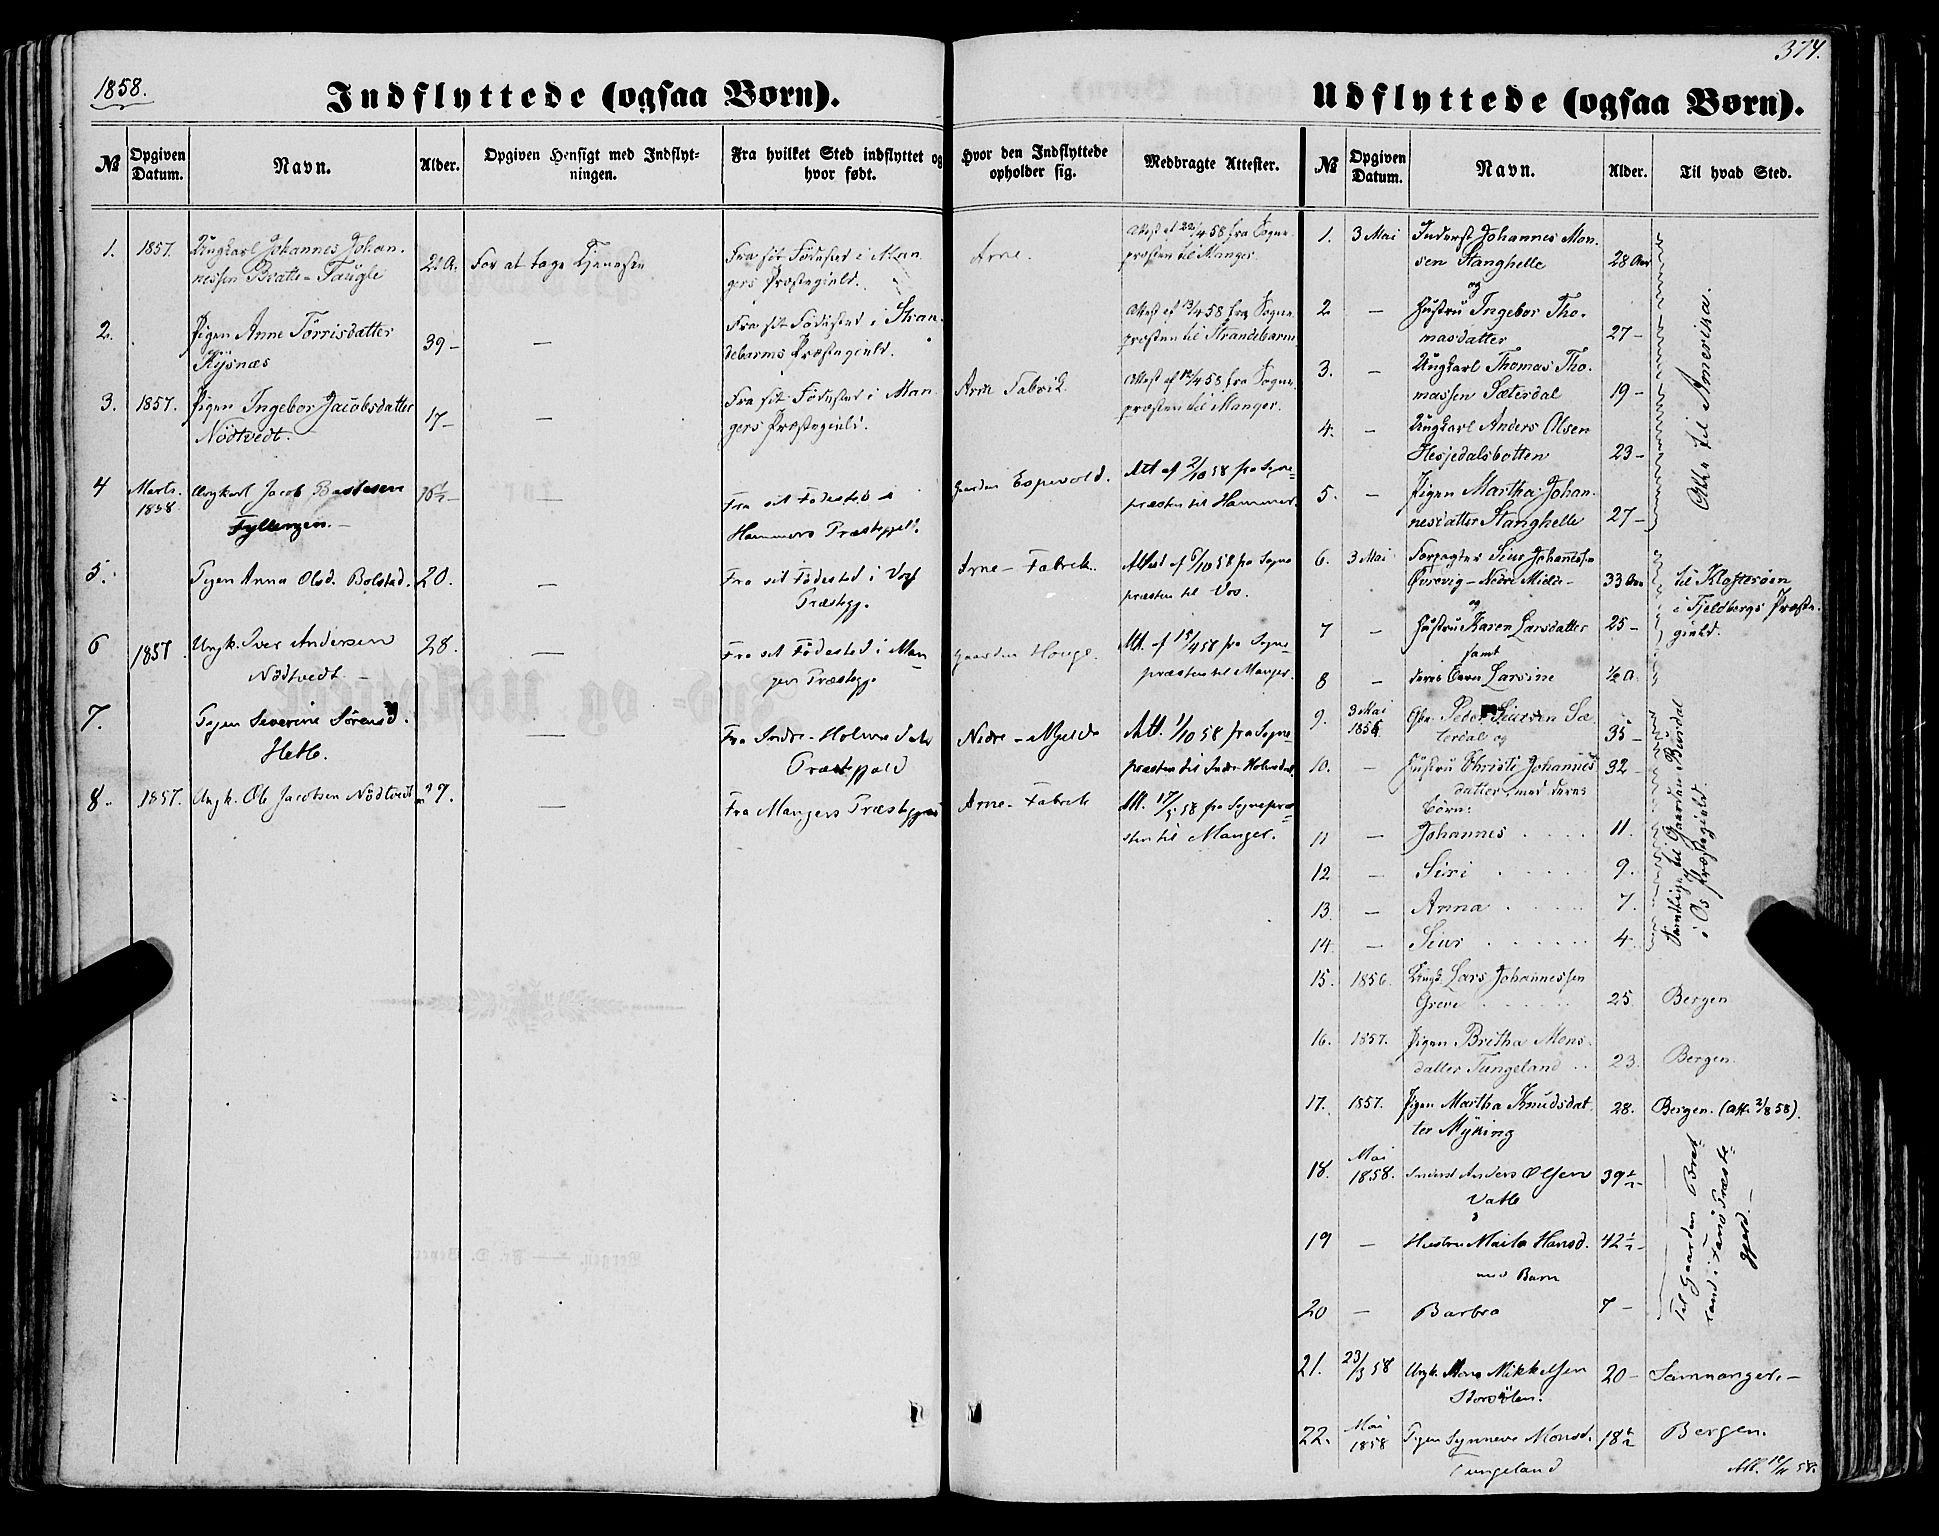 1858.
Indflyttede (ogsaa Børn).
№
Opgiven Datum.
Navn.
Alder.
Opgiven Hensigt med Indflyt-
ningen.
Fra hvilket Sted indflyttet og
hvor født.
Hvor den Indflyttede
opholder sig.
Medbragte Attester.
1. 1857. Ungkarl Johannes Johan-
nessen Bratte-Taugle
21 A. For at tage Tjeneste
Fra sit Fødested i Man
gers Præstegield.
Arne.
Attest af 22/4 58 fra Sogne-
præsten til Manger.
2. Pigen Anne Tørrisdatter
Røsnæs
39 – —
Fra sit Fødested i Stran-
debarms Præstegield.
Attest af 13/4 58 fra Sogne-
præsten til Strandebarm
3. 1857. Pigen Ingebor Jacobsdatter
Nødtvedt.
17 – —
Fra sit Fødested i Man-
gers Præstegield.
Arne Fabrik
Attest af 12/4 58 fra Sogne-
præsten til Manger.
4 Marts 1858 Ungkarl Jacob Bastesen
Fyllingen. –
16½ – —
Fra sit Fødested i
Hammers Præstegjeld.
Gaarden Espevold.
Att af 2/10 58 fra Sogne-
præsten til Hammer.
5. Pigen Anna Olsd. Bolstad. 20. —
Fra sit Fødested i Vos
Præstegj.
Arne – Fabrik.
Attest af 6/10 58 fra Sogne
præsten til Vos.
6 1857. Ungk. Iver Andersen
Nødtvedt –
28. —
Fra sit Fødested i Man-
gers Præstegj.
Gaarden Houge.
Att. af 15/4 58 fra Sogne-
præsten til Manger.
7. Pigen Severine Sørensd.
Hetle.
—
Fra Indre-Holmedals
Præstgjeld
Nedre – Mjelde
Att. 1/10 58 fra Sogne-
præsten til Indre Holmedal.
8. 1857. Ungk. Ole Jacobsen Nødtvedt —
Fra Mangers Præstegjeld
Arne – Fabrik
Att. 17/5 58 fra Sognepræ-
sten til Manger.
374.
Udflyttede (ogsaa Børn).
№
Opgiven Datum.
Navn.
Alder.
Til hvad Sted.
1. 3 Mai Inderst Johannes Mon-
sen Stanghelle 28 Aar
og
2 – Hustru Ingebor Tho-
masdatter 27 –
3. – Ungkarl Thomas Tho-
massen Sæterdal 19 –
4. – Ungkarl Anders Olsen
Hesjedalsbotten 23 –
5. – Pigen Martha Johan-
nesdatter Stanghelle 27 –
Alle til Amerika.
6. 3 Mai Forpagter Siur Johannessen
– Nedre Mielde – 33 Aar
og
7 – Hustru Karen Larsdatter 25 –
samt
8 – deres Barn Larsine ½ A.
til Klosterøen
i Fjeldbergs Præste-
gield.
9. 3 Mai 1856 Gbr. Peder Siursen Sæ-
terdal og 35 –
10. – Hustru Christi Johannes
datter, med deres 32 –
Børn:
11 – Johannes . . . . 11.
12 – Siri . . . . . 9.
13. – Anna . . . . 7.
14. – Siur . . . . . 4.
Samtlige til Gaarden Bursdal
i Os Præstegield.
15. 1856. Ungk. Lars Johannessen
Greve . . . . . 25 Bergen
16. 1857. Pigen Britha Mons-
datter Tungeland . . 23. Bergen.
17. 1857. Pigen Martha Knudsdat-
ter Myking 28. Bergen. (Att. 2/8 58).
18. Mai 1858. Inderst Anders Olsen
Vatle 39½
19 – Hustru Marta Hansd. 42½ –
med Barn
20 – Barbro 7 –
Til Gaarden Bret-
land i Fanø Præste-
gjeld. –
21. 23/3 58 Ungk. Mons Mikkelsen
Storsølen. 20 – Samnanger. –
22. Mai 1858 Pigen Synneve Monsd.
Tungeland 18½ Bergen.
Att. 10/11 58.